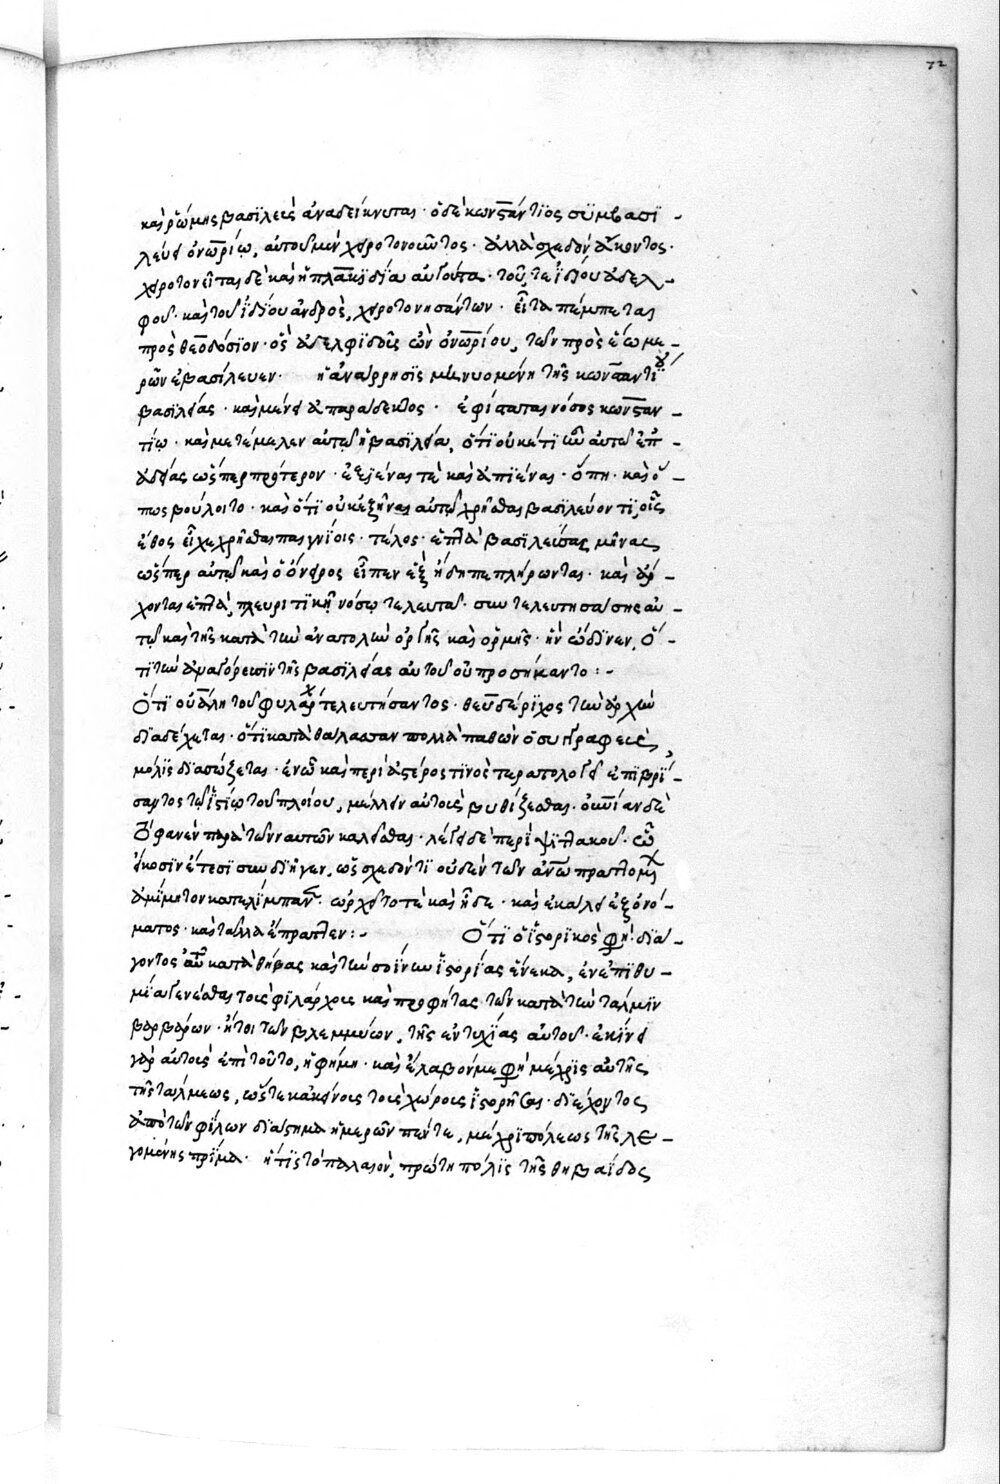 72
καὶ ῥώμης βασϊλεὺς ἀναδείκνυται · ὁ δὲ κωνστάντϊος συμβασϊ -
λεύει ὀνωρίῳ, αὐτοῦ μὲν χειροτονοῦντος · ἀλλὰ σχεδὸν ἄκοντος ·
χειροτονεῖται δὲ καὶ ἡ πλακιδία αὐγούστα · τοῦ τε ἰδίου ἀδελ -
φοῦ · καὶ τοῦ ἰδίου ἀνδρὸς, χειροτονησάντων · εἶτα πέμπεται
πρὸς θεοδόσϊον · ὃς ἀδελφιδοῦς ὢν ὀνωρίου, τῶν πρὸς ἕω με -
ρῶν ἐβασίλευεν · ἡ ἀνάρρησϊς μηνυομένη τῆς κωνσταντίου
βασϊλείας · καὶ μένει ἀπαράδεκτος · ἐφίσταται νόσος κωνσταν -
τίῳ · καὶ μετέμελεν αὐτῷ ἡ βασϊλεία, ὅτϊ οὐκέτϊ ἦν αὐτῷ ἐπ' -
ἀδείας ὥσπερ πρότερον · ἐξϊέναι τε καὶ ἀπϊέναι · ὅπη · καὶ ὅ -
πως βούλοιτο · καὶ ὅτϊ οὐκ ἐξῆναι αὐτῷ χρῆσθαι βασϊλεύοντι, οἷς
ἔθος εἶχε χρῆσθαι παιγνίοις · τέλος · ἑπτὰ βασϊλεύσας μῆνας,
ὥσπερ αὐτῷ καὶ ὁ ὄνειρος εἶπεν ἓξ ἤδη πεπλήρωνται · καὶ ἄρ -
χονται ἑπτὰ, πλευριτϊκῇ νόσῳ τελευτᾷ · συντελευτησάσης αὐ -
τῷ καὶ τῆς κατὰ τὴν ἀνατολὴν ὀργῆς καὶ ὁρμῆς · ἣν ὤδϊνεν, ὅ -
τϊ τὴν ἀναγόρευσϊν τῆς βασϊλείας αὐτοῦ οὐ προσήκαντο : -
Ὅτϊ οὐάλη τοῦ φυλάρχ τελευτήσαντος · θευδέρϊχος τὴν ἀρχὴν
διαδέχεται · ὅτϊ κατὰ θάλασσαν πολλὰ παθὼν ὁ συγγραφεὺς,
μόλϊς διασώζεται · ἐν ᾧ καὶ περὶ ἀστέρος τϊνὸς τερατολογεῖ ἐπϊβρί -
σαντος τῷ ἱστίῳ τοῦ πλοίου, μέλλειν αὐτοὺς βυθίζεσθαι · οὐρανίαν δὲ
τὸ φανὲν παρὰ τῶν ναυτῶν καλεῖσθαι · λέγει δὲ περὶ ψϊττακοῦ · ᾧ
εἴκοσϊν ἔτεσϊ συνδιῆγεν, ὡς σχεδόν τϊ οὐδὲν τῶν ἀνων πραττομ
ἀμίμητον καταλϊμπάν · ὠρχεῖτό τε καὶ ᾖδε · καὶ ἐκάλει ἐξ ὀνό -
ματος · καὶ τἄλλα ἔπραττεν : - Ὅτϊ ὁ ἱστορϊκὸς φη · διά -
γοντος αὐτοῦ κατὰ θήβας καὶ τὴν σοήνην ἱστορίας ἕνεκα, ἐν ἐπϊθυ -
μίᾳ γενέσθαι τοὺς φϊλάρχους καὶ προφήτας τῶν κατὰ τὴν τάλμϊν
βαρβάρων · ἤτοι τῶν βλεμμύων, τῆς ἐντυχίας αὐτοῦ · ἐκίνει
γὰρ αὐτοὺς ἐπὶ τοῦτο, ἡ φήμη · καὶ ἔλαβόν με φη μέχρϊς αὐτῆς
τῆς τάλμεως, ὥστε κἀκείνους τοὺς χώρους ἱστορῆσαι · διέχοντας
ἀπὸ τῶν φίλων διάστημα ἡμερῶν πέντε, μέχρϊ πόλεως τῆς λε -
γομένης πρίμα · ἥτϊς τὸ παλαιὸν, πρώτη πόλϊς τῆς θηβαίδος